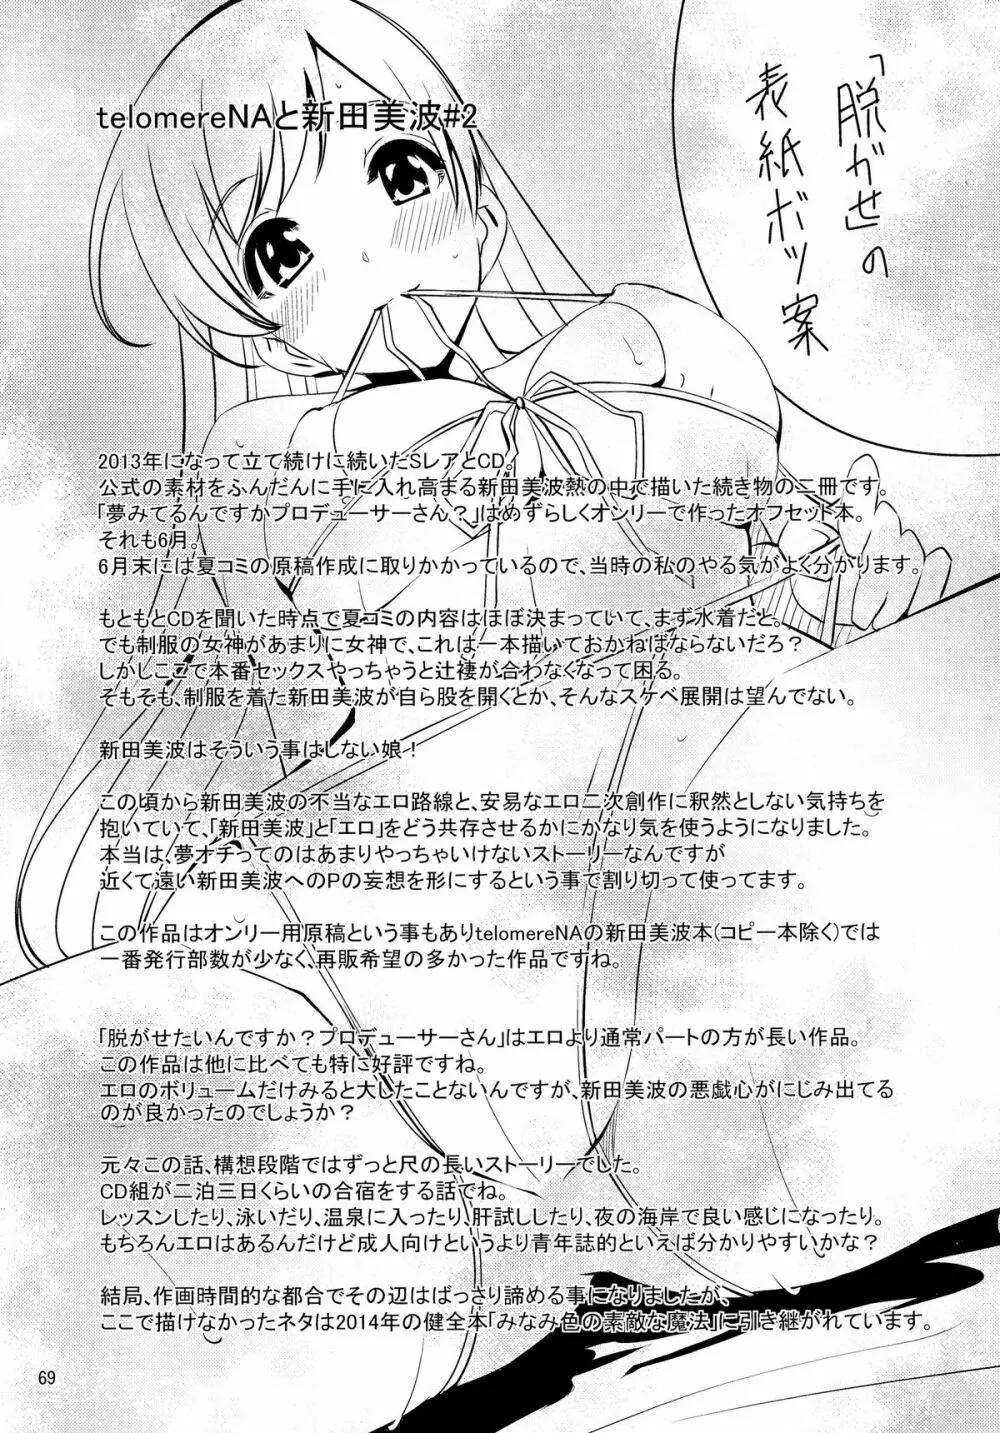 「脱がせ」の
表紙ボツ案
telomereNAと新田美波#2
2013年になって立て続けに続いたSレアとCD。
公式の素材をふんだんに手に入れ高まる新田美波熱の中で描いた続き物の二冊です。
「夢みてるんですかプロデューサーさん？」はめずらしくオンリーで作ったオフセット本。
それも6月。
6月末には夏コミの原稿作成に取りかかっているので、当時の私のやる気がよく分かります。
もともとCDを聞いた時点で夏コミの内容はほぼ決まっていて、まず水着だと。
でも制服の女神があまりに女神で、これは一本描いておかねばならないだろ？
しかしここで本番セックスやっちゃうと辻褄が合わなくなって困る。
そもそも、制服を着た新田美波が自ら股を開くとか、そんなスケベ展開は望んでない。
新田美波はそういう事はしない娘！
この頃から新田美波の不当なエロ路線と、安易なエロ二次創作に釈然としない気持ちを
抱いていて、「新田美波」と「エロ」をどう共存させるかにかなり気を使うようになりました。
本当は、夢オチってのはあまりやっちゃいけないストーリーなんですが
近くて遠い新田美波へのPの妄想を形にするという事で割り切って使ってます。
この作品はオンリー用原稿という事もありtelomereNAの新田美波本(コピー本除く)では
一番発行部数が少なく、再販希望の多かった作品ですね。
「脱がせたいんですか？プロデューサーさん」はエロより通常パートの方が長い作品。
この作品は他に比べても特に好評ですね。
エロのボリュームだけみると大したことないんですが、新田美波の悪戯心がにじみ出てる
のが良かったのでしょうか？
元々この話、構想段階ではずっと尺の長いストーリーでした。
CD組が二泊三日くらいの合宿をする話でね。
レッスンしたり、泳いだり、温泉に入ったり、肝試ししたり、夜の海岸で良い感じになったり。
もちろんエロはあるんだけど成人向けというより青年誌的といえば分かりやすいかな？
結局、作画時間的な都合でその辺はばっさり諦める事になりましたが、
ここで描けなかったネタは2014年の健全本「みなみ色の素敵な魔法」に引き継がれています。
69